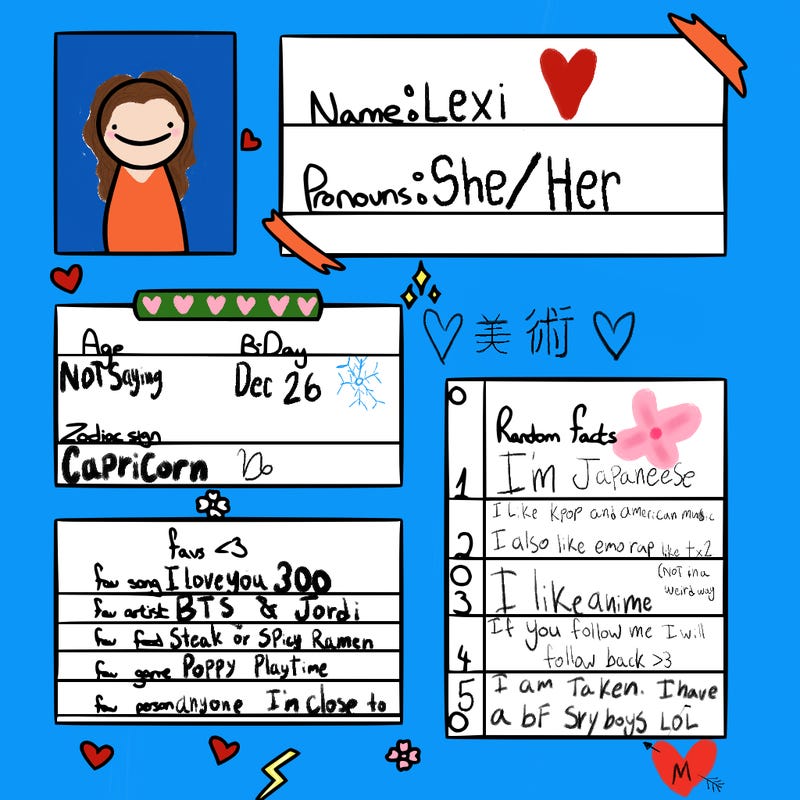 Name: Lexi
Pronouns: She/Her
Age
BiDay
Not Saying
Dec 26
Zodiac sign
Capricorn
美術
favs <3
fav song I love you 300
fav artist BTS & Jordi
fav food Steak or Spicy Ramen
fav game Poppy Playtime
fav person anyone I'm close to
Random facts
1 I'm Japaneese
I Like Kpop and american music
2 I also like emo rap like txz
3 I like anime (Not in a
weird way
If you follow me I will
4 follow back >3
5 I am Taken. I have
a bF Sry boys LoL
M